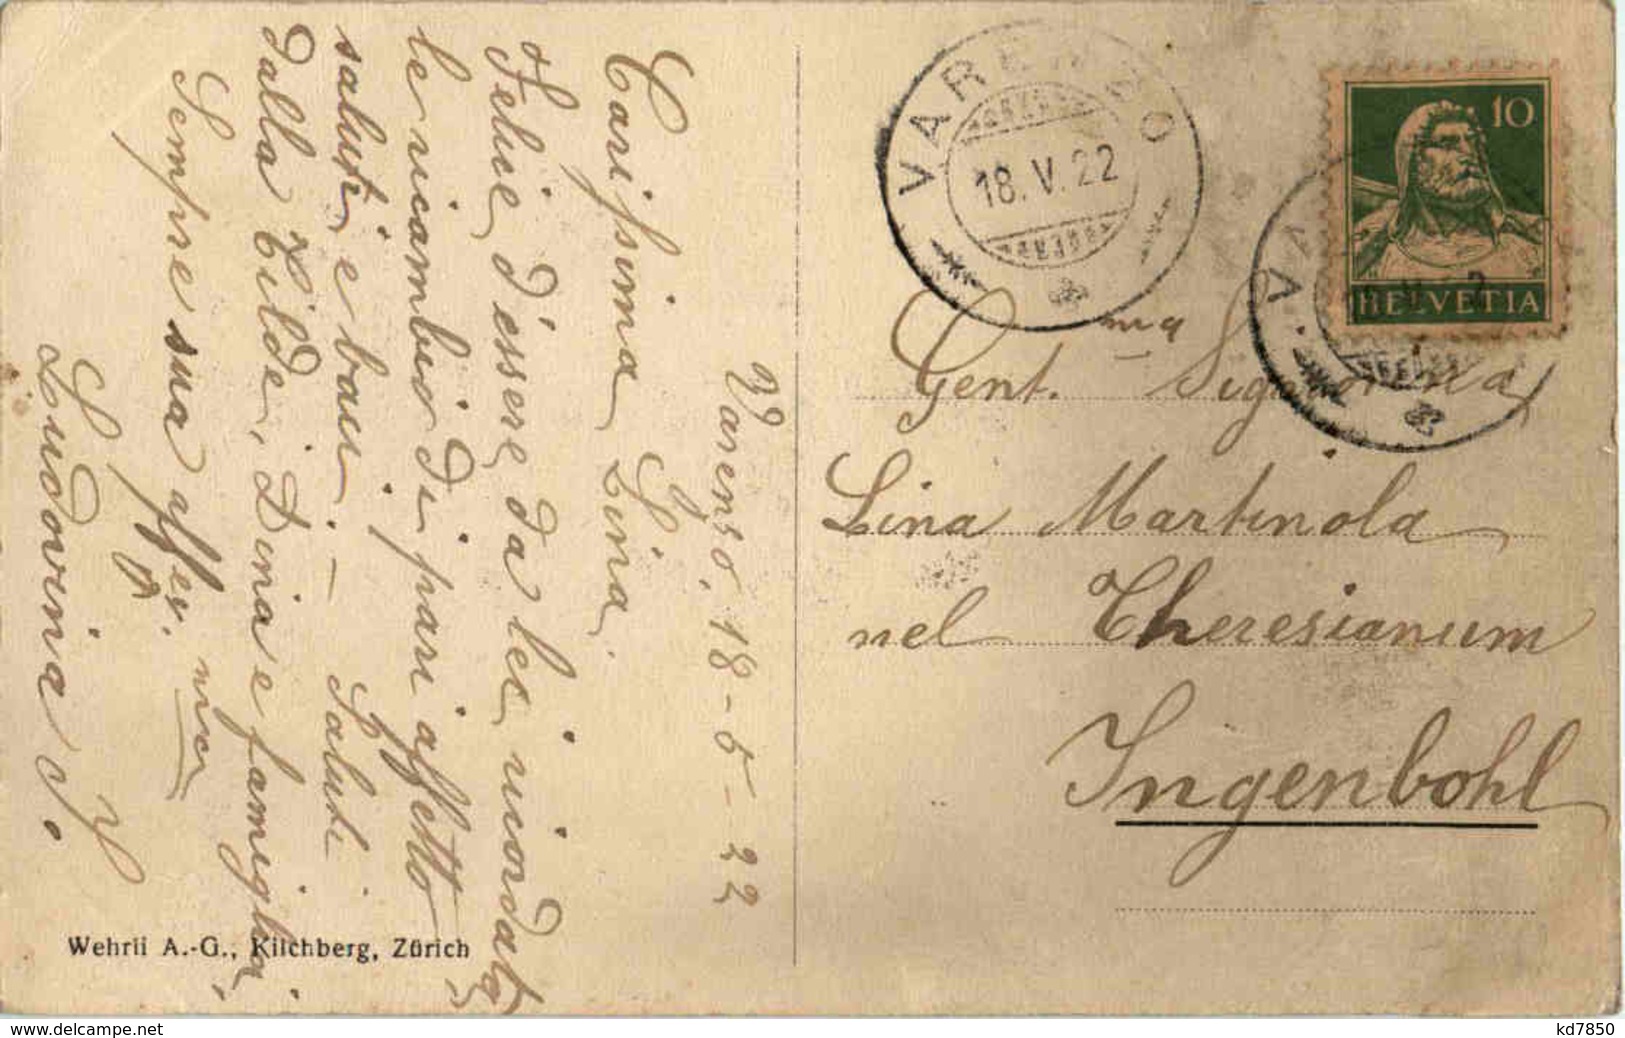 Varenzo, 18-5-22
Carissima Lina.
Felice d'essere da lei ricordata,
le ricambio di pari affetto
saluti e baci. — Saluti
dalla Tilde, Dina e famiglia.
Sempre sua affez. mia
Ludovina Y.
Wehrli A.-G., Kilchberg, Zürich
VARENZO
18. V. 22
10
HELVETIA
VA
Gent.ma Signorina
Lina Martinola
nel Theresianum
Ingenbohl
www.delcampe.net
kd7850